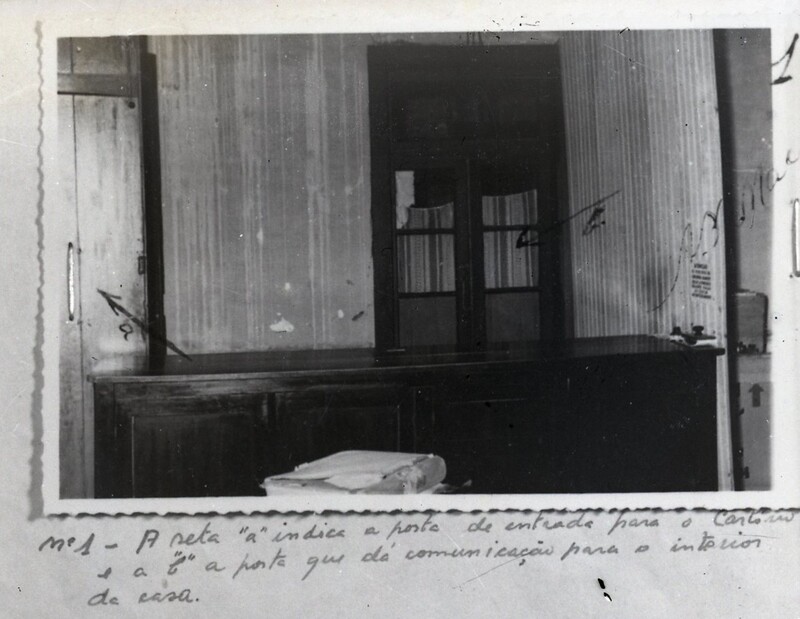 1
a
b
nº 1 - A seta "a" indica a porta de entrada para o Cartório
e a "b" a porta que dá comunicação para o interior
da casa.